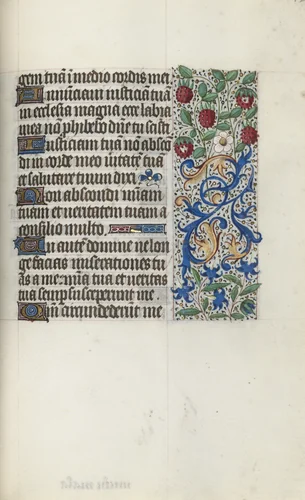 gem tuã ĩ medio cordis mei.
Annũciaui iusticiã tuã
in ecclesia magna ecce labia
mea nõ phibebo dñe tu scisti
Iusticiam tuã nõ abscõ
di in corde meo ueritatẽ tuã
et salutare tuum dixi
Non abscondi miãm
tuam et ueritatem tuam a
consilio multo.
Tu autẽ domine ne lon
ge facias miserationes tu
as a me: mĩa tua et ueritas
tua semp susceperunt me.
Qm̃ circundederũt me